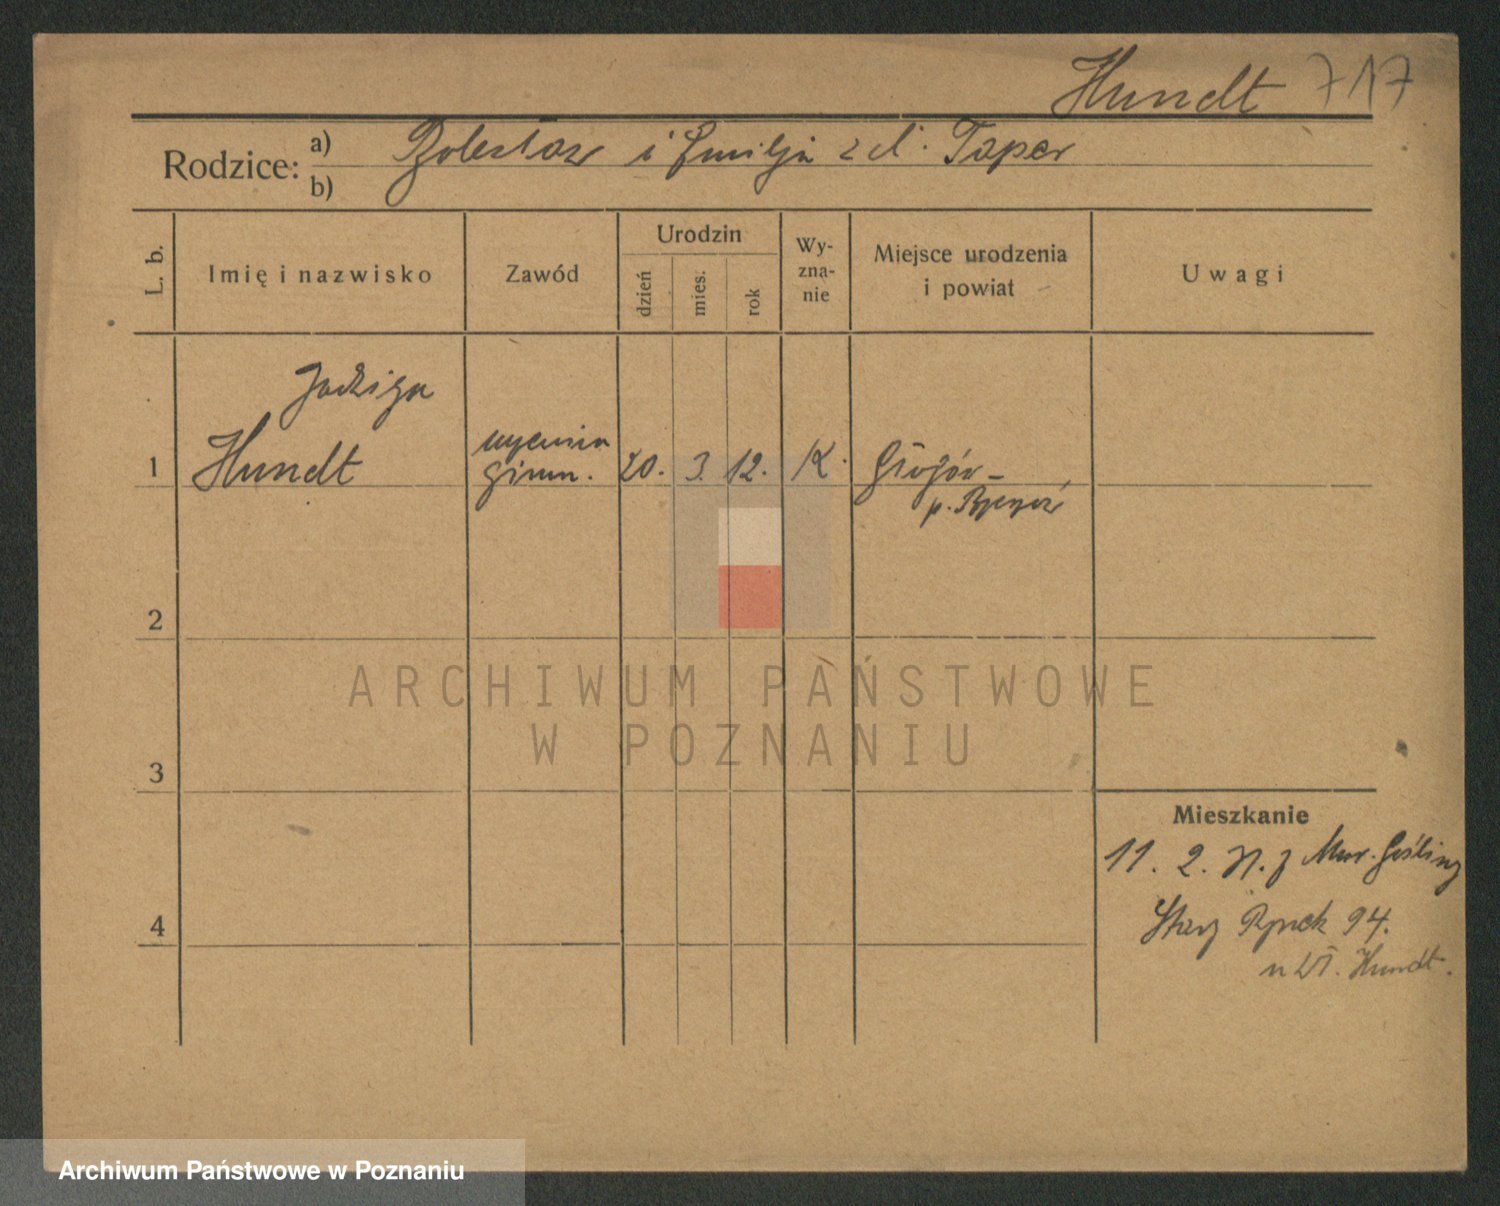 Hundt 717
Rodzice: a) Bolesław i Emilja z d. Taper
b)
L. b.
Imię i nazwisko
Zawód
Urodzin
dzień
mies.
rok
Wy-
zna-
nie
Miejsce urodzenia
i powiat
Uwagi
Jadwiga
1 Hundt
uczenica
gimn.
20. 3. 12. K.
Głogów -
p.
2
3
4
Mieszkanie
11. 2. z Mur. Gośliny
Stary Rynek 94.
u Wł. Hundt.
ARCHIWUM PAŃSTWOWE
W POZNANIU
Archiwum Państwowe w Poznaniu